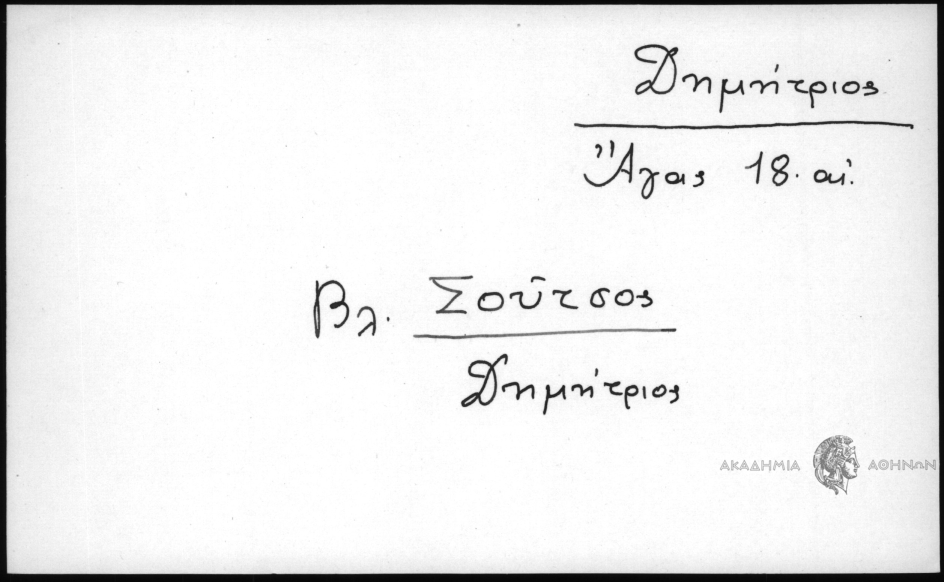 Δημήτριος
Ἄγας 18. αἰ.
Βλ. Σοῦτσος
Δημήτριος
ΑΚΑΔΗΜΙΑ ΑΘΗΝΩΝ